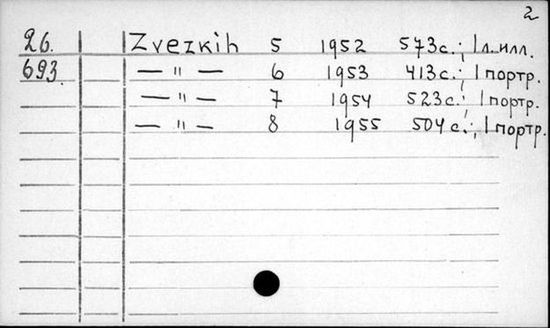 2
26. Zvezkih 5 1952 573с.; 1 л. илл.
693. — " — 6 1953 413с.; 1 портр.
— " — 7 1954 523с.; 1 портр.
— " — 8 1955 504с.; 1 портр.